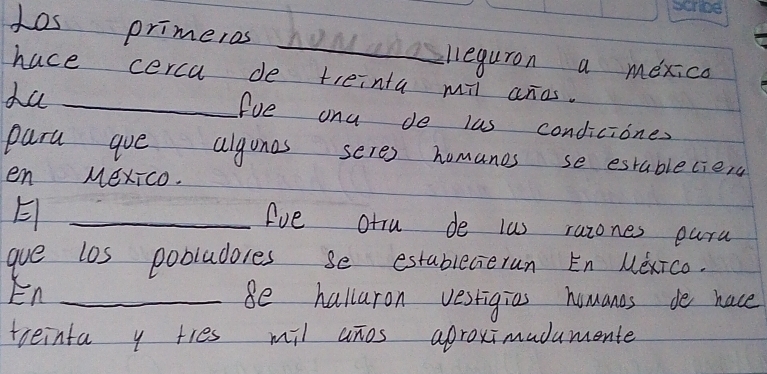 Scribe
Los primeros __________ lleguron a méxico
hace cerca de treinta mil años.
La __________ fue una de las condiciónes
para que algunos seres humanos se estableciera
en México.
El __________ fue otra de las razones para
que los pobladores se establecieran En México.
En __________ se hallaron vestigios humanos de hace
treinta y tres mil años aproximadamente